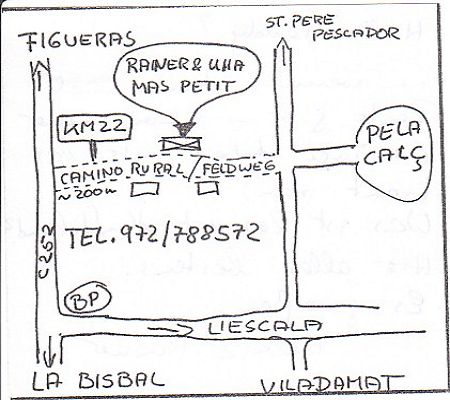 FIGUERAS
ST. PERE
PESCADOR
RAINER & UHA
MAS PETIT
KM22
PELA
CALÇ
CAMINO RURAL / FELDWEG
~200m
C252
TEL. 972/788572
BP
L'ESCALA
LA BISBAL
VILADAMAT